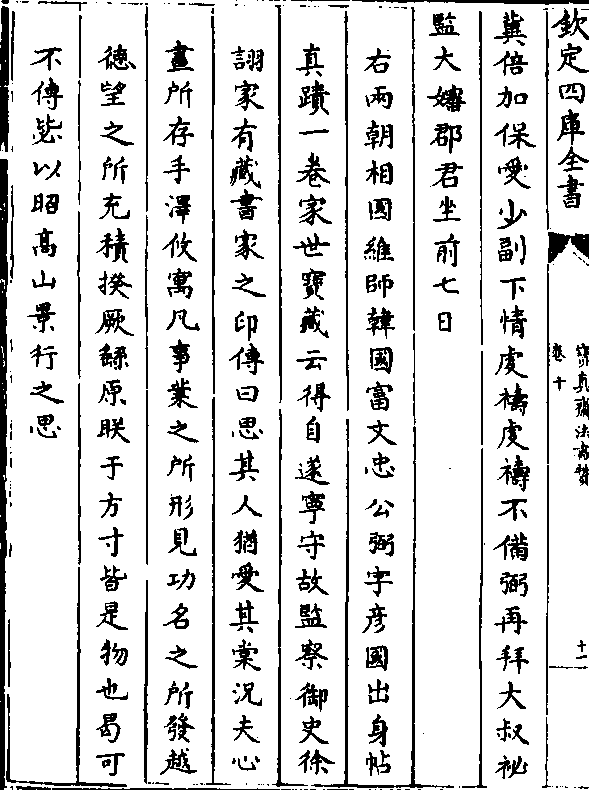 欽定四庫全書
寶真齋法書贊
卷十
十一
冀倍加保愛少副下情虔禱虔禱不備弼再拜大叔祕
監大嬸郡君坐前七日
右兩朝相國維師韓國富文忠公弼字彦國出身帖
真蹟一卷家世寶藏云得自遂寧守故監察御史徐
詡家有藏書家之印傳曰思其人猶愛其棠況夫心
畫所存手澤攸寓凡事業之所形見功名之所發越
德望之所充積揆厥繇原朕于方寸皆是物也曷可
不傳毖以昭高山景行之思